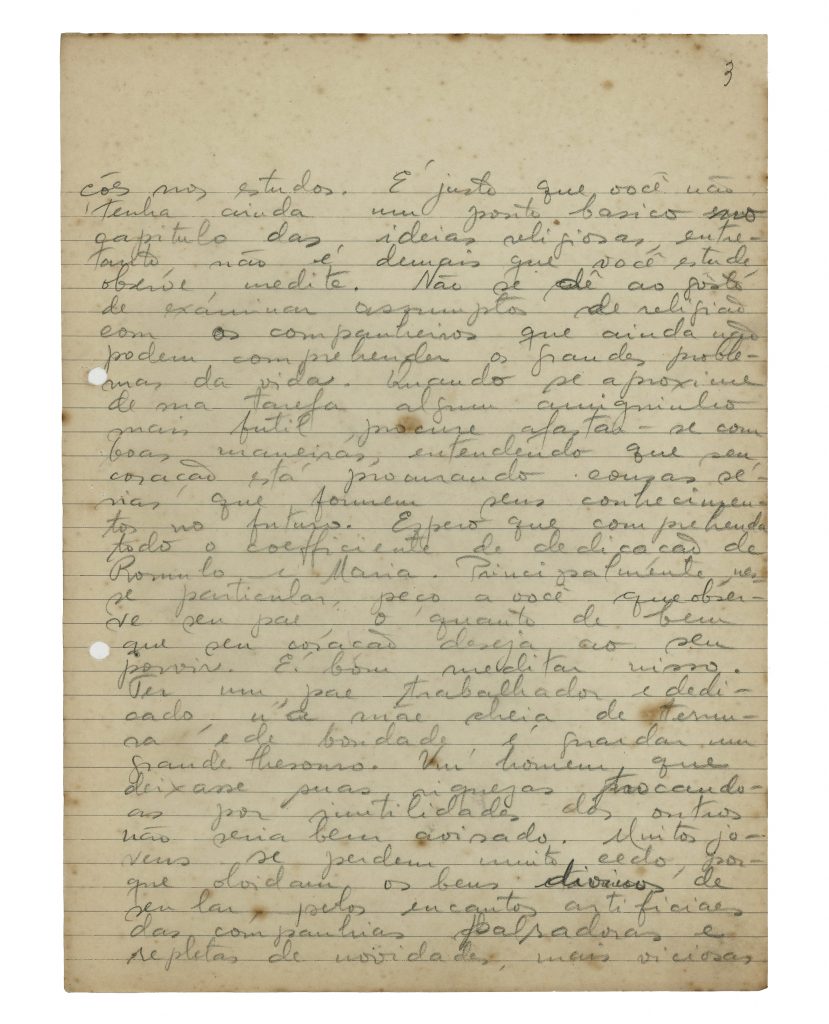 3
ções nos estudos. É justo que você não
tenha ainda um posto basico no
capitulo das ideias religiosas, entre-
tanto, não é demais que você estude
observe, medite. Não se dê ao gosto
de examinar assumptos de religião
com os companheiros que ainda não
podem comprehender os grandes proble-
mas da vida. Quando se aproxime
de sua tarefa algum amiguinho
mais futil, procure afastar-se com
boas maneiras, entendendo que seu
coração está procurando cousas sé-
rias que formem seus conhecimen-
tos no futuro. Espero que comprehenda
todo o coefficiente de dedicação de
Romulo e Maria. Principalmente, nes-
se particular, peço a você que obser-
ve seu pae o quanto de bem
que seu coração deseja ao seu
porvir. É bom meditar nisso.
Ter um pae trabalhador e dedi-
cado, u'a mãe cheia de ternu-
ra e de bondade é guardar um
grande thesouro. Um homem, que
deixasse suas riquezas trocando-
as por inutilidades dos outros
não seria bem avisado. Muitos jo-
vens se perdem muito cedo, por-
que olvidam os bens divinos de
seu lar, pelos encantos artificiaes
das companhias palradoras e
repletas de novidades, mais viciosas